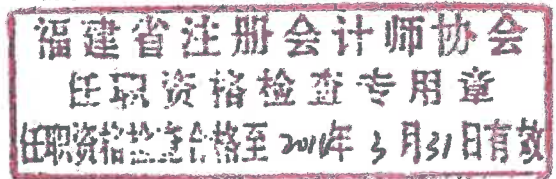 福建省注册会计师协会
任职资格检查专用章
任职资格检查合格至 年 3 月 31 日有效